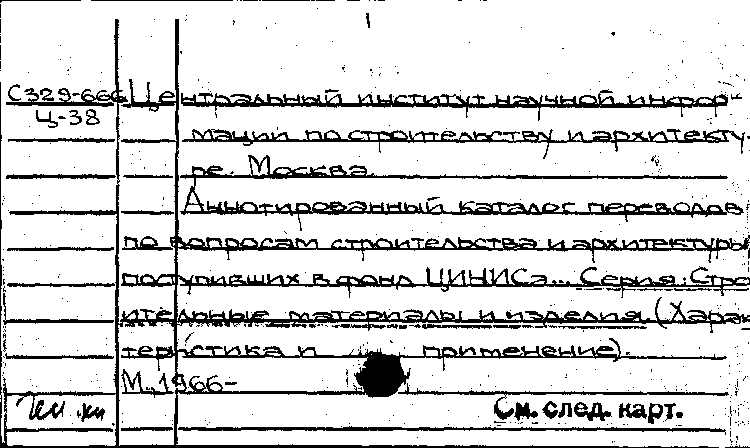 С329-666 Центральный институт научной инфор-
Ц-38
мации по строительству и архитекту-
ре. Москва.
Аннотированный каталог переводов
по вопросам строительства и архитектуры,
поступивших в фонд ЦИНИСа... Серия: Стро
ительные материалы и изделия. (Харак
теристика и применение).
М., 1966-
См. след. карт.